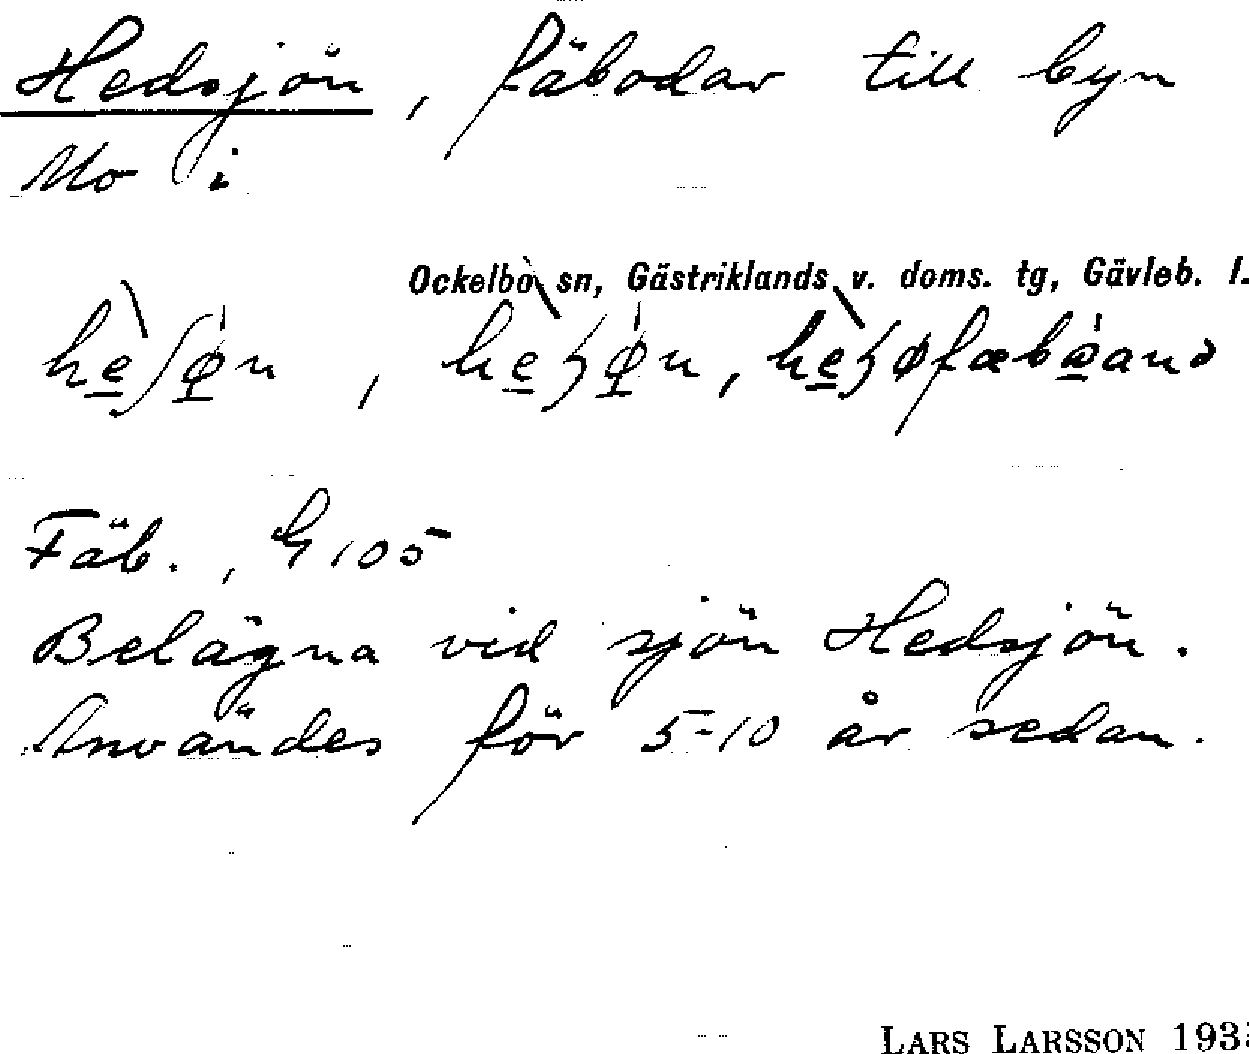 Hedsjön, fäbodar till byn
Mo i
Ockelbo sn, Gästriklands v. doms. tg, Gävleb. l.
Fäb., G 105
Belägna vid sjön Hedsjön.
Användes för 5-10 år sedan.
LARS LARSSON 193